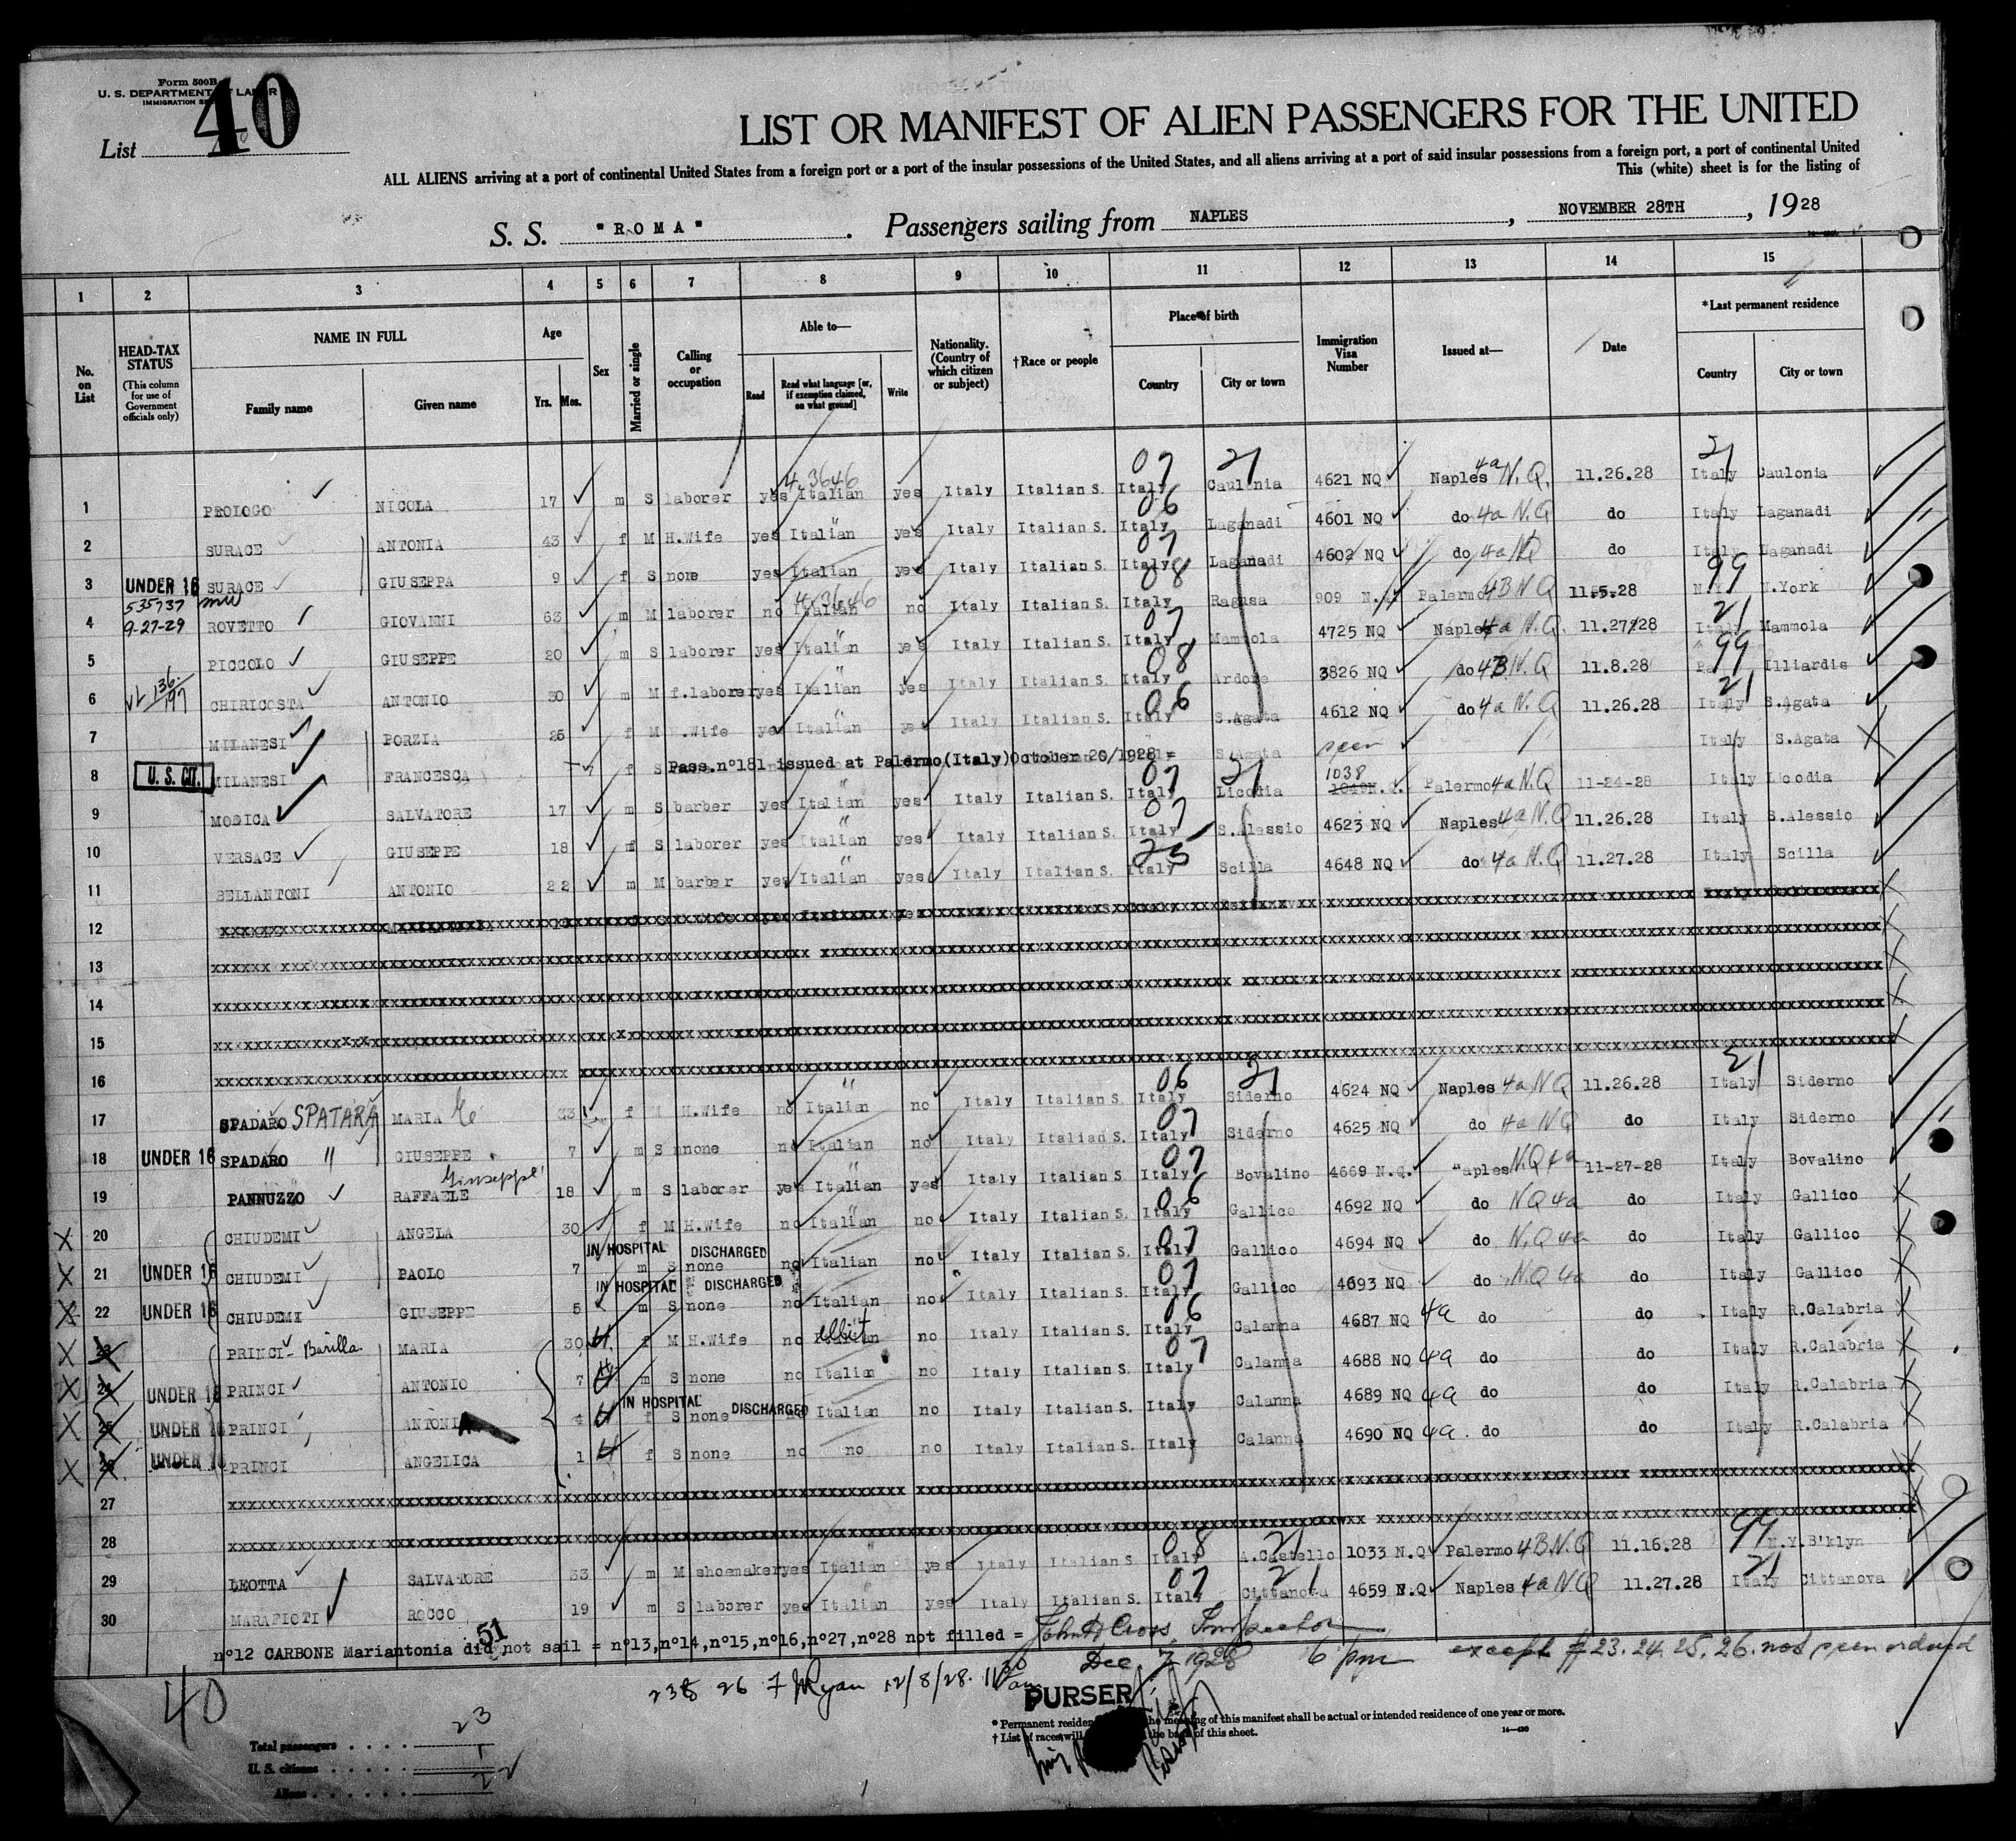 Form 500B
U. S. DEPARTMENT OF LABOR
IMMIGRATION
List 40
LIST OR MANIFEST OF ALIEN PASSENGERS FOR THE UNITED
ALL ALIENS arriving at a port of continental United States from a foreign port or a port of the insular possessions of the United States, and all aliens arriving at a port of said insular possessions from a foreign port, a port of continental United
This (white) sheet is for the listing of
S. S. "ROMA". Passengers sailing from NAPLES, NOVEMBER 28TH, 1928
1 2 3 4 5 6 7 8 9 10 11 12 13 14 15
No. on List
HEAD-TAX STATUS (This column for use of Government officials only)
NAME IN FULL
Family name Given name
Age Yrs. Mos.
Sex
Married or single
Calling or occupation
Able to—
Read Read what language [or, if exemption claimed, on what ground] Write
Nationality. (Country of which citizen or subject)
†Race or people
Place of birth
Country City or town
Immigration Visa Number
Issued at—
Date
*Last permanent residence
Country City or town
1 PROLOGO NICOLA 17 m S laborer yes Italian yes Italy Italian S. Italy 07 Caulonia 21 4621 NQ Naples 4a N.Q. 11.26.28 Italy 21 Caulonia
2 SURACE ANTONIA 43 f M H.Wife yes Italian yes Italy Italian S. Italy 06 Laganadi 4601 NQ do 4a N.Q do Italy Laganadi
3 UNDER 16 SURACE GIUSEPPA 9 f S none yes Italian yes Italy Italian S. Italy 07 Laganadi 4602 NQ do 4a NQ do Italy Laganadi
4 535737 9-27-29 ROVETTO GIOVANNI 63 m M laborer no Italian no Italy Italian S. Italy 08 Ragusa 909 Palermo 4B N.Q 11.5.28 99 N.York
5 PICCOLO GIUSEPPE 20 m S laborer yes Italian yes Italy Italian S. Italy 07 Mammola 4725 NQ Naples 4a N.Q. 11.27.28 Italy 21 Mammola
6 CHIRICOSTA ANTONIO 30 m M f.laborer yes Italian yes Italy Italian S. Italy 08 Ardore 3826 NQ do 4B N.Q 11.8.28 99 Illiardis
7 MILANESI PORZIA 25 f M H.Wife yes Italian yes Italy Italian S. Italy 06 S.Agata 4612 NQ do 4a N.Q 11.26.28 Italy 21 S.Agata
8 U. S. CIT. MILANESI FRANCESCA f S Pass.n°181 issued at Palermo(Italy)October 20/1928 = S.Agata Italy S.Agata
9 MODICA SALVATORE 17 m S barber yes Italian yes Italy Italian S. Italy 07 Licodia 21 1038 Palermo 4a N.Q 11-24-28 Italy Licodia
10 VERSACE GIUSEPPE 18 m S laborer yes Italian yes Italy Italian S. Italy 07 S.Alessio 4623 NQ Naples 4a N.Q 11.26.28 Italy S.Alessio
11 BELLANTONI ANTONIO 22 m M barber yes Italian yes Italy Italian S. Italy 25 Scilla 4648 NQ do 4a N.Q 11.27.28 Italy Scilla
12
13
14
15
16
17 SPADARO SPATARA MARIA 33 f H.Wife no Italian no Italy Italian S. Italy 06 Siderno 21 4624 NQ Naples 4a NQ 11.26.28 Italy 21 Siderno
18 UNDER 16 SPADARO " GIUSEPPE 7 m S none no Italian no Italy Italian S. Italy 07 Siderno 4625 NQ do 4a NQ do Italy Siderno
19 PANNUZZO RAFFAELE Giuseppe 18 m S laborer yes Italian yes Italy Italian S. Italy 07 Bovalino 4669 N.Q. Naples N.Q 4a 11-27-28 Italy Bovalino
20 CHIUDEMI ANGELA 30 f M H.Wife no Italian no Italy Italian S. Italy 06 Gallico 4692 NQ do NQ 4a do Italy Gallico
IN HOSPITAL DISCHARGED
21 UNDER 16 CHIUDEMI PAOLO 7 m S none no Italian no Italy Italian S. Italy 07 Gallico 4694 NQ do N.Q 4a do Italy Gallico
IN HOSPITAL DISCHARGED
22 UNDER 16 CHIUDEMI GIUSEPPE 5 m S none no Italian no Italy Italian S. Italy 07 Gallico 4693 NQ do N.Q 4a do Italy Gallico
23 PRINCI - Barilla MARIA 30 f M H.Wife no Italian no Italy Italian S. Italy 06 Calanna 4687 NQ 4a do do Italy R.Calabria
24 UNDER 16 PRINCI ANTONIO 7 m S none no Italian no Italy Italian S. Italy 07 Calanna 4688 NQ 4a do do Italy R.Calabria
IN HOSPITAL DISCHARGED
25 UNDER 16 PRINCI ANTONIA 4 f S none no Italian no Italy Italian S. Italy Calanna 4689 NQ 4a do do Italy R.Calabria
26 UNDER 16 PRINCI ANGELICA 1 f S none no no no Italy Italian S. Italy Calanna 4690 NQ 4a do do Italy R.Calabria
27
28
29 LEOTTA SALVATORE 33 m M shoemaker yes Italian yes Italy Italian S Italy 08 A.Castello 21 1033 N.Q Palermo 4B N.Q 11.16.28 99 N.Y. B'klyn
30 MARAFIOTI ROCCO 19 m S laborer yes Italian yes Italy Italian S. Italy 07 Cittanova 21 4659 N.Q Naples 4a NQ 11.27.28 Italy 21 Cittanova
n°12 CARBONE Mariantonia did not sail = n°13,n°14,n°15,n°16,n°27,n°28 not filled = John D Cross, Inspector
51
Dec 7 1928 6 pm except # 23. 24. 25. 26. not seen
40
26 F Ryan 12/8/28. 11 30 am
PURSER
* Permanent residence the meaning of this manifest shall be actual or intended residence of one year or more.
† List of races will the back of this sheet.
14—430
Total passengers . . . . 23
U. S. citizens . . . . . 1
Aliens . . . . . . 22